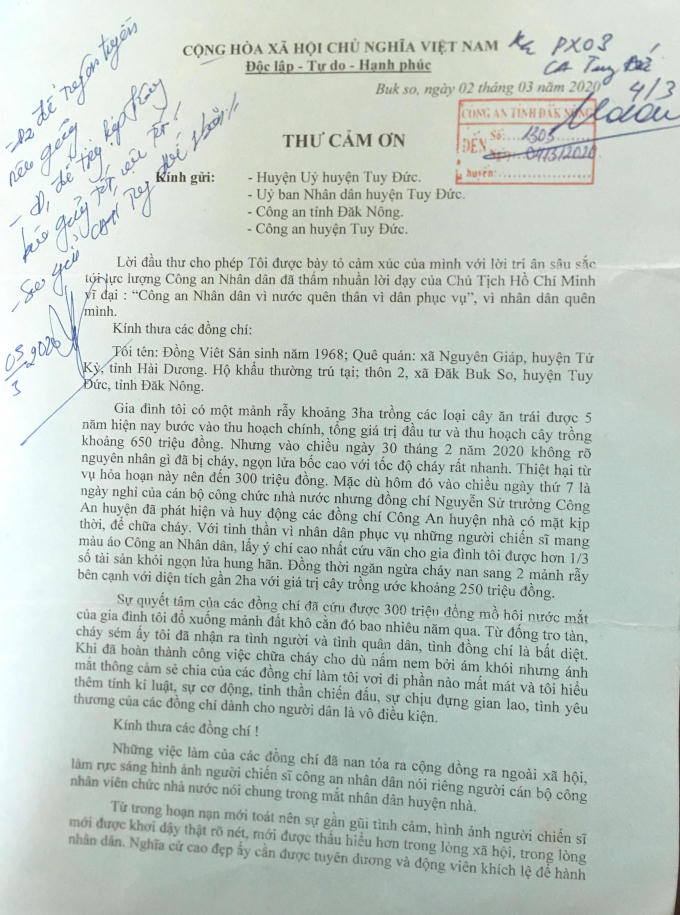 CỘNG HÒA XÃ HỘI CHỦ NGHĨA VIỆT NAM
Độc lập - Tự do - Hạnh phúc
Buk so, ngày 02 tháng 03 năm 2020
PX03
CA Tuy Đức
4/3
CÔNG AN TỈNH ĐĂK NÔNG
ĐẾN Số: 1303
04/3/2020
huyện:
THƯ CẢM ƠN
Kính gửi:
- Huyện Uỷ huyện Tuy Đức.
- Uỷ ban Nhân dân huyện Tuy Đức.
- Công an tỉnh Đăk Nông.
- Công an huyện Tuy Đức.
05/3 2020
Lời đầu thư cho phép Tôi được bày tỏ cảm xúc của mình với lời tri ân sâu sắc
tới lực lượng Công an Nhân dân đã thấm nhuần lời dạy của Chủ Tịch Hồ Chí Minh
vĩ đại : “Công an Nhân dân vì nước quên thân vì dân phục vụ”, vì nhân dân quên
mình.
Kính thưa các đồng chí:
Tôi tên: Đồng Viêt Sản sinh năm 1968; Quê quán: xã Nguyên Giáp, huyện Tứ
Kỳ, tỉnh Hải Dương. Hộ khẩu thường trú tại; thôn 2, xã Đăk Buk So, huyện Tuy
Đức, tỉnh Đăk Nông.
Gia đình tôi có một mảnh rẫy khoảng 3ha trồng các loại cây ăn trái được 5
năm hiện nay bước vào thu hoạch chính, tổng giá trị đầu tư và thu hoạch cây trồng
khoảng 650 triệu đồng. Nhưng vào chiều ngày 30 tháng 2 năm 2020 không rõ
nguyên nhân gì đã bị cháy, ngọn lửa bốc cao với tốc độ cháy rất nhanh. Thiệt hại từ
vụ hỏa hoạn này nên đến 300 triệu đồng. Mặc dù hôm đó vào chiều ngày thứ 7 là
ngày nghỉ của cán bộ công chức nhà nước nhưng đồng chí Nguyễn Sử trưởng Công
An huyện đã phát hiện và huy động các đồng chí Công An huyện nhà có mặt kịp
thời, để chữa cháy. Với tinh thần vì nhân dân phục vụ những người chiến sĩ mang
màu áo Công an Nhân dân, lấy ý chí cao nhất cứu vãn cho gia đình tôi được hơn 1/3
số tài sản khỏi ngọn lửa hung hãn. Đồng thời ngăn ngừa cháy nan sang 2 mảnh rẫy
bên cạnh với diện tích gần 2ha với giá trị cây trồng ước khoảng 250 triệu đồng.
Sự quyết tâm của các đồng chí đã cứu được 300 triệu đồng mồ hôi nước mắt
của gia đình tôi đổ xuống mảnh đất khô cằn đó bao nhiêu năm qua. Từ đống tro tàn,
cháy sém ấy tôi đã nhận ra tình người và tình quân dân, tình đồng chí là bất diệt.
Khi đã hoàn thành công việc chữa cháy cho dù nấm nem bởi ám khói nhưng ánh
mắt thông cảm sẻ chia của các đồng chí làm tôi vơi đi phần nào mất mát và tôi hiểu
thêm tính kỉ luật, sự cơ động, tinh thần chiến đấu, sự chịu đựng gian lao, tình yêu
thương của các đồng chí dành cho người dân là vô điều kiện.
Kính thưa các đồng chí !
Những việc làm của các đồng chí đã nan tỏa ra cộng đồng ra ngoài xã hội,
làm rực sáng hình ảnh người chiến sĩ công an nhân dân nói riêng người cán bộ công
nhân viên chức nhà nước nói chung trong mắt nhân dân huyện nhà.
Từ trong hoạn nạn mới toát nên sự gần gũi tình cảm, hình ảnh người chiến sĩ
mới được khơi dậy thật rõ nét, mới được thấu hiểu hơn trong lòng xã hội, trong lòng
nhân dân. Nghĩa cử cao đẹp ấy cần được tuyên dương và động viên khích lệ để hành